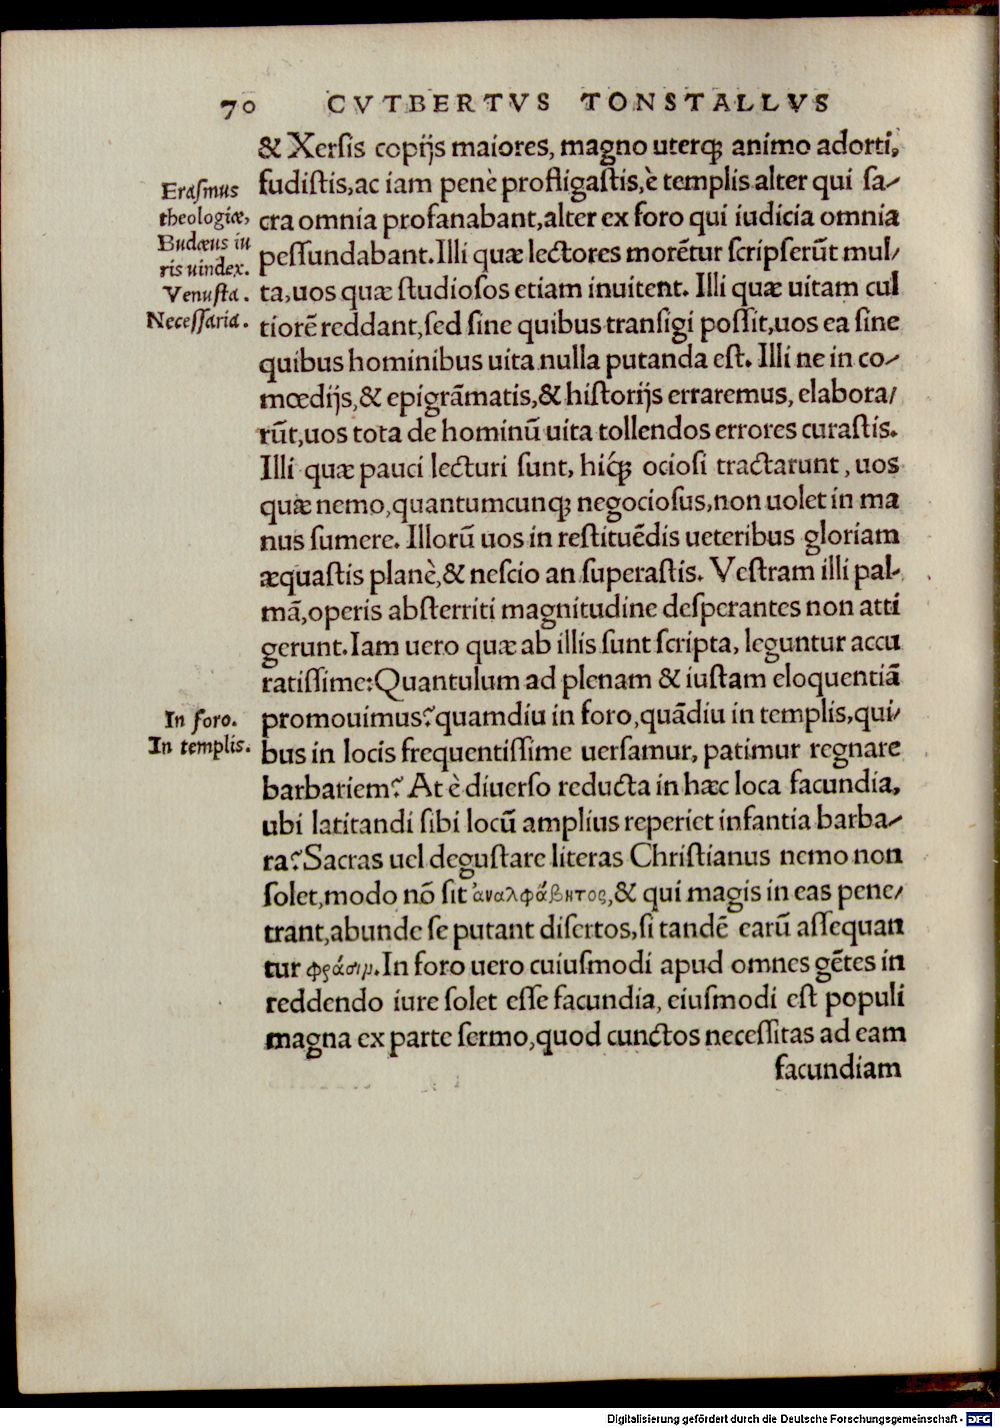 70 CVTBERTVS TONSTALLVS
& Xersis copijs maiores, magno uterq; animo adorti,
fudistis, ac iam penè profligastis, è templis alter qui sa-
cra omnia profanabant, alter ex foro qui iudicia omnia
pessundabant. Illi quæ lectores morẽtur scripserũt mul/
ta, uos quæ studiosos etiam inuitent. Illi quæ uitam cul
tiorẽ reddant, sed sine quibus transigi possit, uos ea sine
quibus hominibus uita nulla putanda est. Illi ne in co-
mœdijs, & epigrãmatis, & historijs erraremus, elabora/
rũt, uos tota de hominũ uita tollendos errores curastis.
Illi quæ pauci lecturi sunt, hiq́; ociosi tractarunt, uos
quæ nemo, quantumcunq; negociosus, non uolet in ma
nus sumere. Illorũ uos in restituẽdis ueteribus gloriam
æquastis planè, & nescio an superastis. Vestram illi pal-
mã, operis absterriti magnitudine desperantes non atti
gerunt. Iam uero quæ ab illis sunt scripta, leguntur accu
ratissime: Quantulum ad plenam & iustam eloquentiã
promouimus? quamdiu in foro, quãdiu in templis, qui/
bus in locis frequentissime uersamur, patimur regnare
barbariem? At è diuerso reducta in hæc loca facundia,
ubi latitandi sibi locũ amplius reperiet infantia barba-
ra? Sacras uel degustare literas Christianus nemo non
solet, modo nõ sit ἀναλφάβητος, & qui magis in eas pene/
trant, abunde se putant disertos, si tandẽ earũ assequan
tur φράσιμ. In foro uero cuiusmodi apud omnes gẽtes in
reddendo iure solet esse facundia, eiusmodi est populi
magna ex parte sermo, quod cunctos necessitas ad eam
facundiam
Erasmus
theologiæ,
Budæus iu
ris uindex.
Venusta.
Necessaria.
In foro.
In templis.
Digitalisierung gefördert durch die Deutsche Forschungsgemeinschaft - DFG